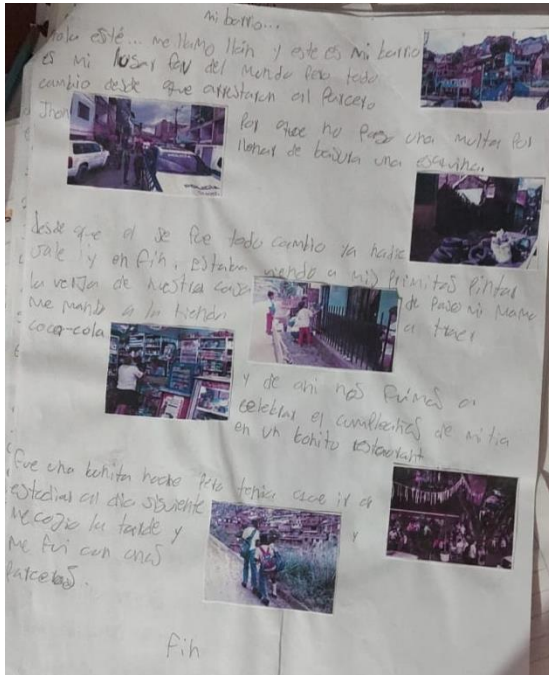 mi barrio...
hola esté... me llamo Ilan y este es mi barrio
es mi lugar fav del mundo pero todo
cambio desde que arrestaron al parcero
Jhon
por que no pago una multa por
llenar de basura una esquina.
desde que el se fue todo cambio ya nadie
sale y en fih, estaba viendo a mis primitos pintar
la verja de nuestra casa
de paso mi mama
me mando a la tienda
a traer
coca-cola
y de ahi nos fuimos a
celebrar el cumpleaños de mi tia
en un bonito restaurant
fue una bonita noche pero tenia que ir a
estudiar al dia siguiente
y
me cogio la tarde y
me fui con unos
parceros.
fih